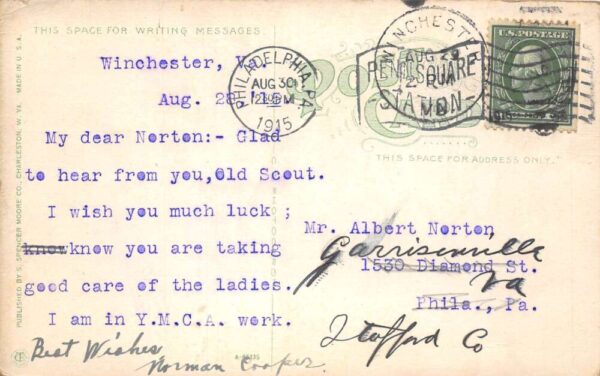 THIS SPACE FOR WRITING MESSAGES.
Winchester, Va.
Aug. 28 '15
My dear Norton:- Glad
to hear from you,Old Scout.
I wish you much luck ;
know know you are taking
good care of the ladies.
I am in Y.M.C.A. work.
Best Wishes
Norman Cooper
PUBLISHED BY S. SPENCER MOORE CO., CHARLESTON, W. VA. MADE IN U.S.A.
PHILADELPHIA, PA.
AUG 30
1915
WINCHESTER
AUG 29
PENN SQUARE
STATION
U.S. POSTAGE
THIS SPACE FOR ADDRESS ONLY.
Mr. Albert Norton,
Garrisonville
1530 Diamond St.
Va
Phila., Pa.
Stafford Co